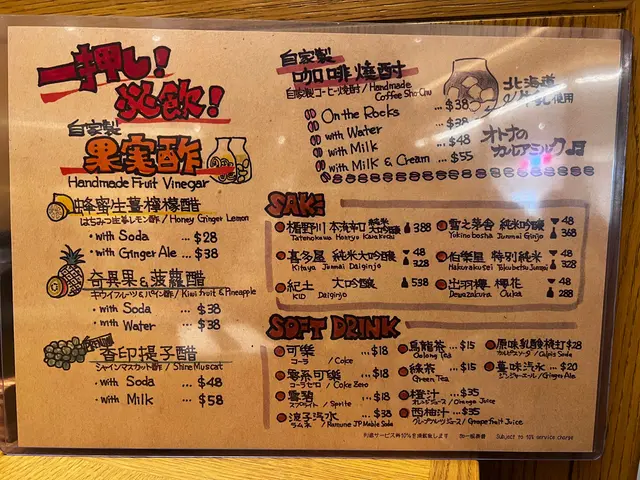 一押し!
必飲!
自家製
果実酢
Handmade Fruit Vinegar
蜂蜜生薑檸檬醋
はちみつ生姜レモン酢 / Honey Ginger Lemon
・with Soda ... $28
・with Ginger Ale ... $38
奇異果&菠蘿醋
キウイフルーツ&パイン酢 / Kiwi fruit & Pineapple
・with Soda ... $38
・with Water ... $38
香印提子醋
シャインマスカット酢 / Shine Muscat
・with Soda ... $48
・with Milk ... $58
自家製
咖啡燒酎
自家製コーヒー焼酎 / Handmade
Coffee Sho Chu
On the Rocks ... $38
with Water ... $38
with Milk ... $48
with Milk & Cream ... $55
北海道
牛乳使用
オトナの
カルアミルク♬
SAKE
楯野川 本流辛口 純米大吟醸 388
Tatenokawa Honryu Karakuchi
喜多屋 純米大吟醸 48
Kitaya Junmai Daiginjo 328
紀土 大吟醸 538
KID Daiginjo
雪之茅舎 純米吟醸 48
Yukinobosha Junmai Ginjo 368
伯楽星 特別純米 48
Hakurakusei Tokubetsu Junmai 328
出羽桜 桜花 48
Dewazakura Ouka 288
SOFT DRINK
可樂 ... $18
コーラ / Coke
零系可樂 ... $18
コーラゼロ / Coke Zero
雪碧 ... $18
スプライト / Sprite
波子汽水 ... $38
ラムネ / Ramune JP Mable Soda
烏龍茶 ... $15
Oolong Tea
綠茶 ... $15
Green Tea
橙汁 ... $35
オレンジジュース / Orange Juice
西柚汁 ... $35
グレープフルーツジュース / Grapefruit Juice
原味乳酸梳打 $28
カルピスソーダ / Calpis Soda
薑味汽水 ... $20
ジンジャーエール / Ginger Ale
別途サービス料10%を頂戴致します 加一服務費 Subject to 10% service charge